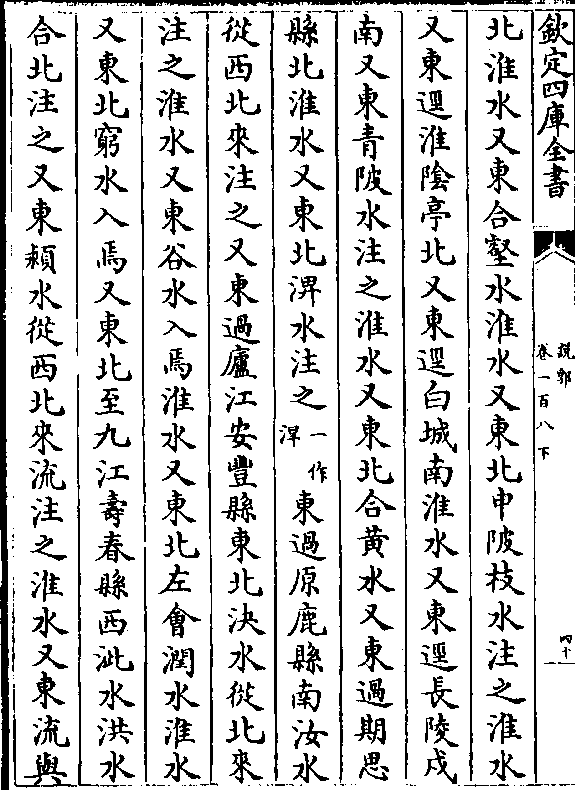 欽定四庫全書
說郛
卷一百八下
四十
北淮水又東合壑水淮水又東北申陂枝水注之淮水
又東逕淮陰亭北又東逕白城南淮水又東逕長陵戍
南又東青陂水注之淮水又東北合黄水又東過期思
縣北淮水又東北淠水注之一作淠東過原鹿縣南汝水
從西北來注之又東過廬江安豐縣東北決水從北來
注之淮水又東谷水入焉淮水又東北左會潤水淮水
又東北窮水入焉又東北至九江壽春縣西沘水洪水
合北注之又東潁水從西北來流注之淮水又東流與